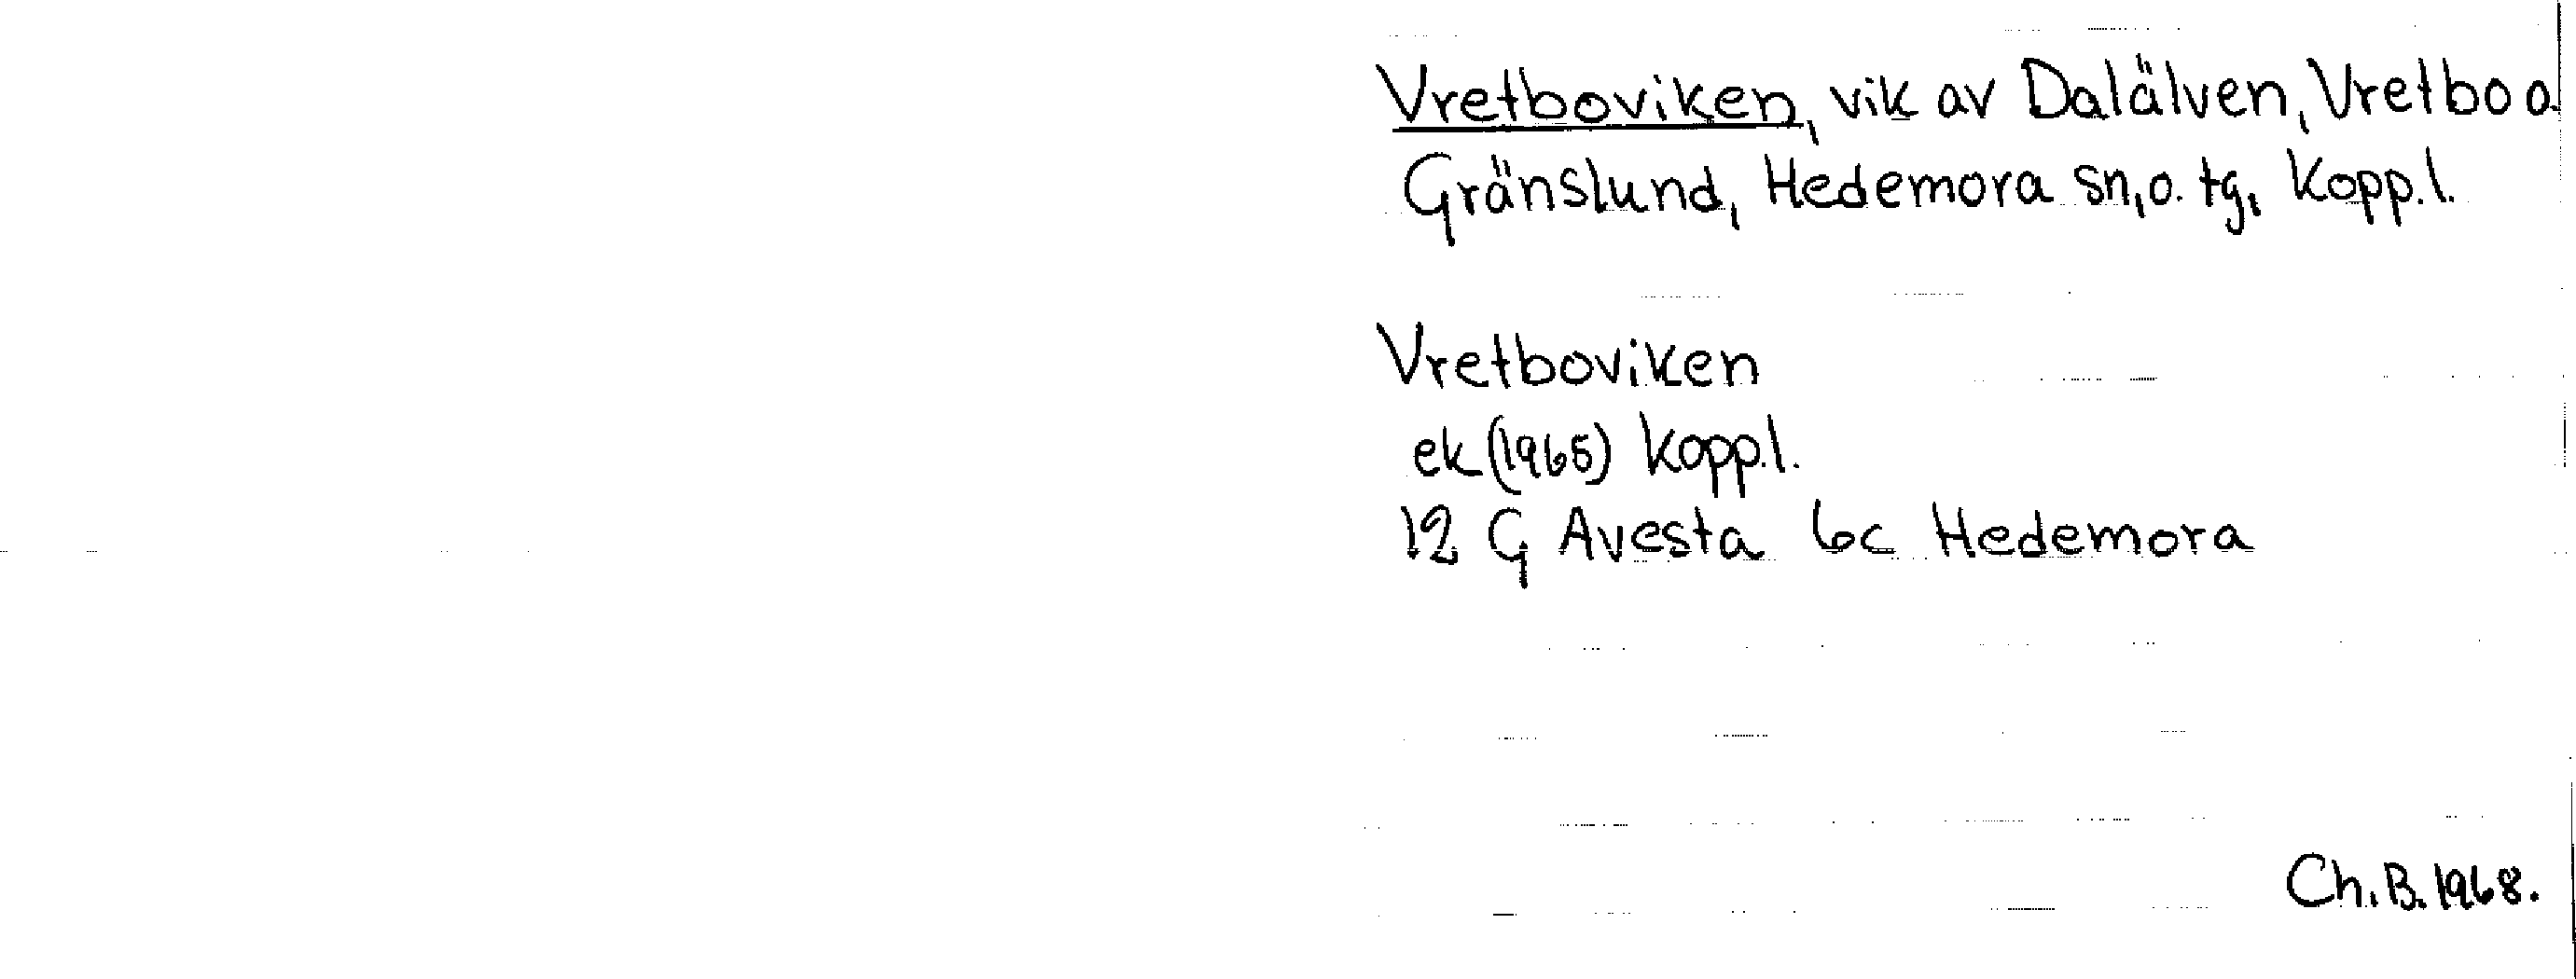 Vretboviken, vik av Dalälven, Vretbo o.
Gränslund, Hedemora sn, o. tg, Kopp. l.
Vretboviken
ek (1965) Kopp. l.
12 G Avesta 6c Hedemora
Ch. B. 1968.